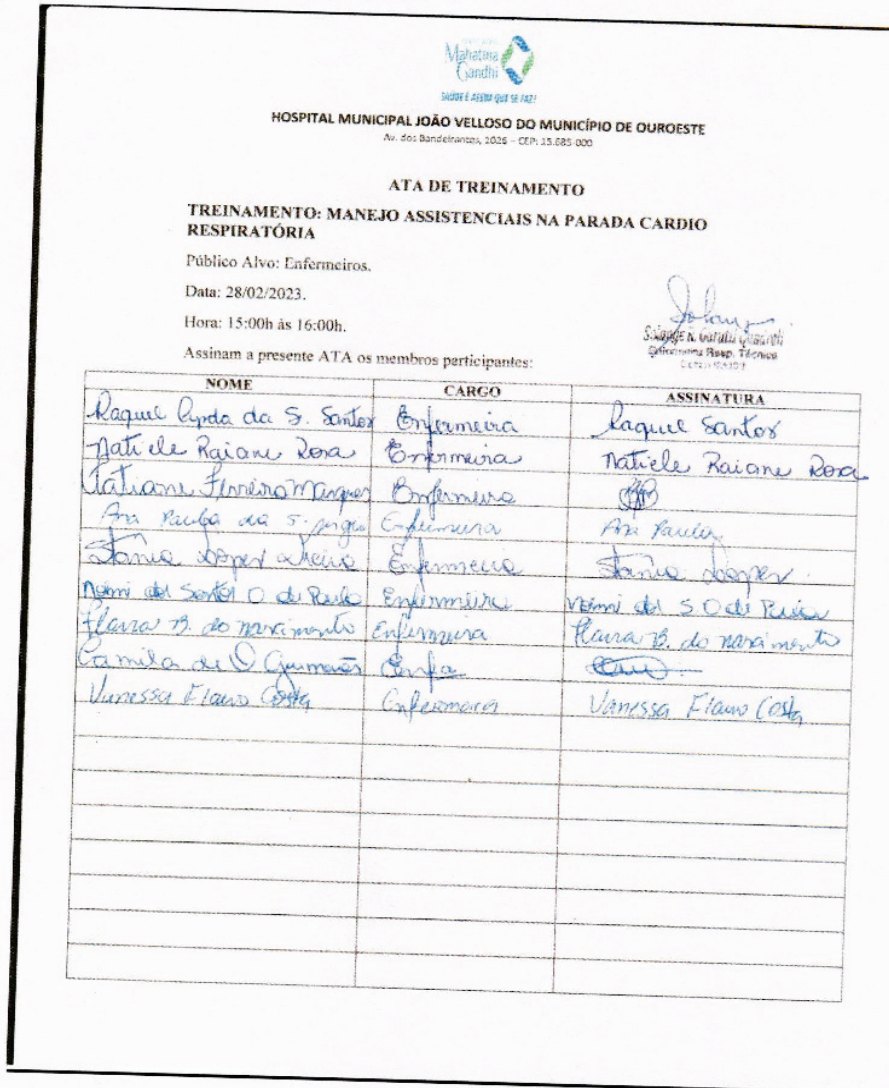 Mahatma
Gandhi
SAÚDE É ASSIM QUE SE FAZ!
HOSPITAL MUNICIPAL JOÃO VELLOSO DO MUNICÍPIO DE OUROESTE
Av. dos Bandeirantes, 2026 – CEP: 15.685-000
ATA DE TREINAMENTO
TREINAMENTO: MANEJO ASSISTENCIAIS NA PARADA CARDIO
RESPIRATÓRIA
Público Alvo: Enfermeiros.
Data: 28/02/2023.
Hora: 15:00h às 16:00h.
Enfermeira Resp. Técnica
Assinam a presente ATA os membros participantes:
NOME CARGO ASSINATURA
Raquel da S. Santos Enfermeira Raquel Santos
Natiele Raiane Rosa Enfermeira Natiele Raiane Rosa
Tatiane Ferreira Marques Enfermeira
Ana Paula da S. Enfermeira Ana Paula
Tania Lopes Enfermeira Tania Lopes
Noemi dos Santos O de Paula Enfermeira Noemi dos S O de Paula
Flavia B. do nascimento Enfermeira Flavia B. do nascimento
Camila de O Guimarães Enfa
Vanessa Flavio Costa Enfermeira Vanessa Flavio Costa